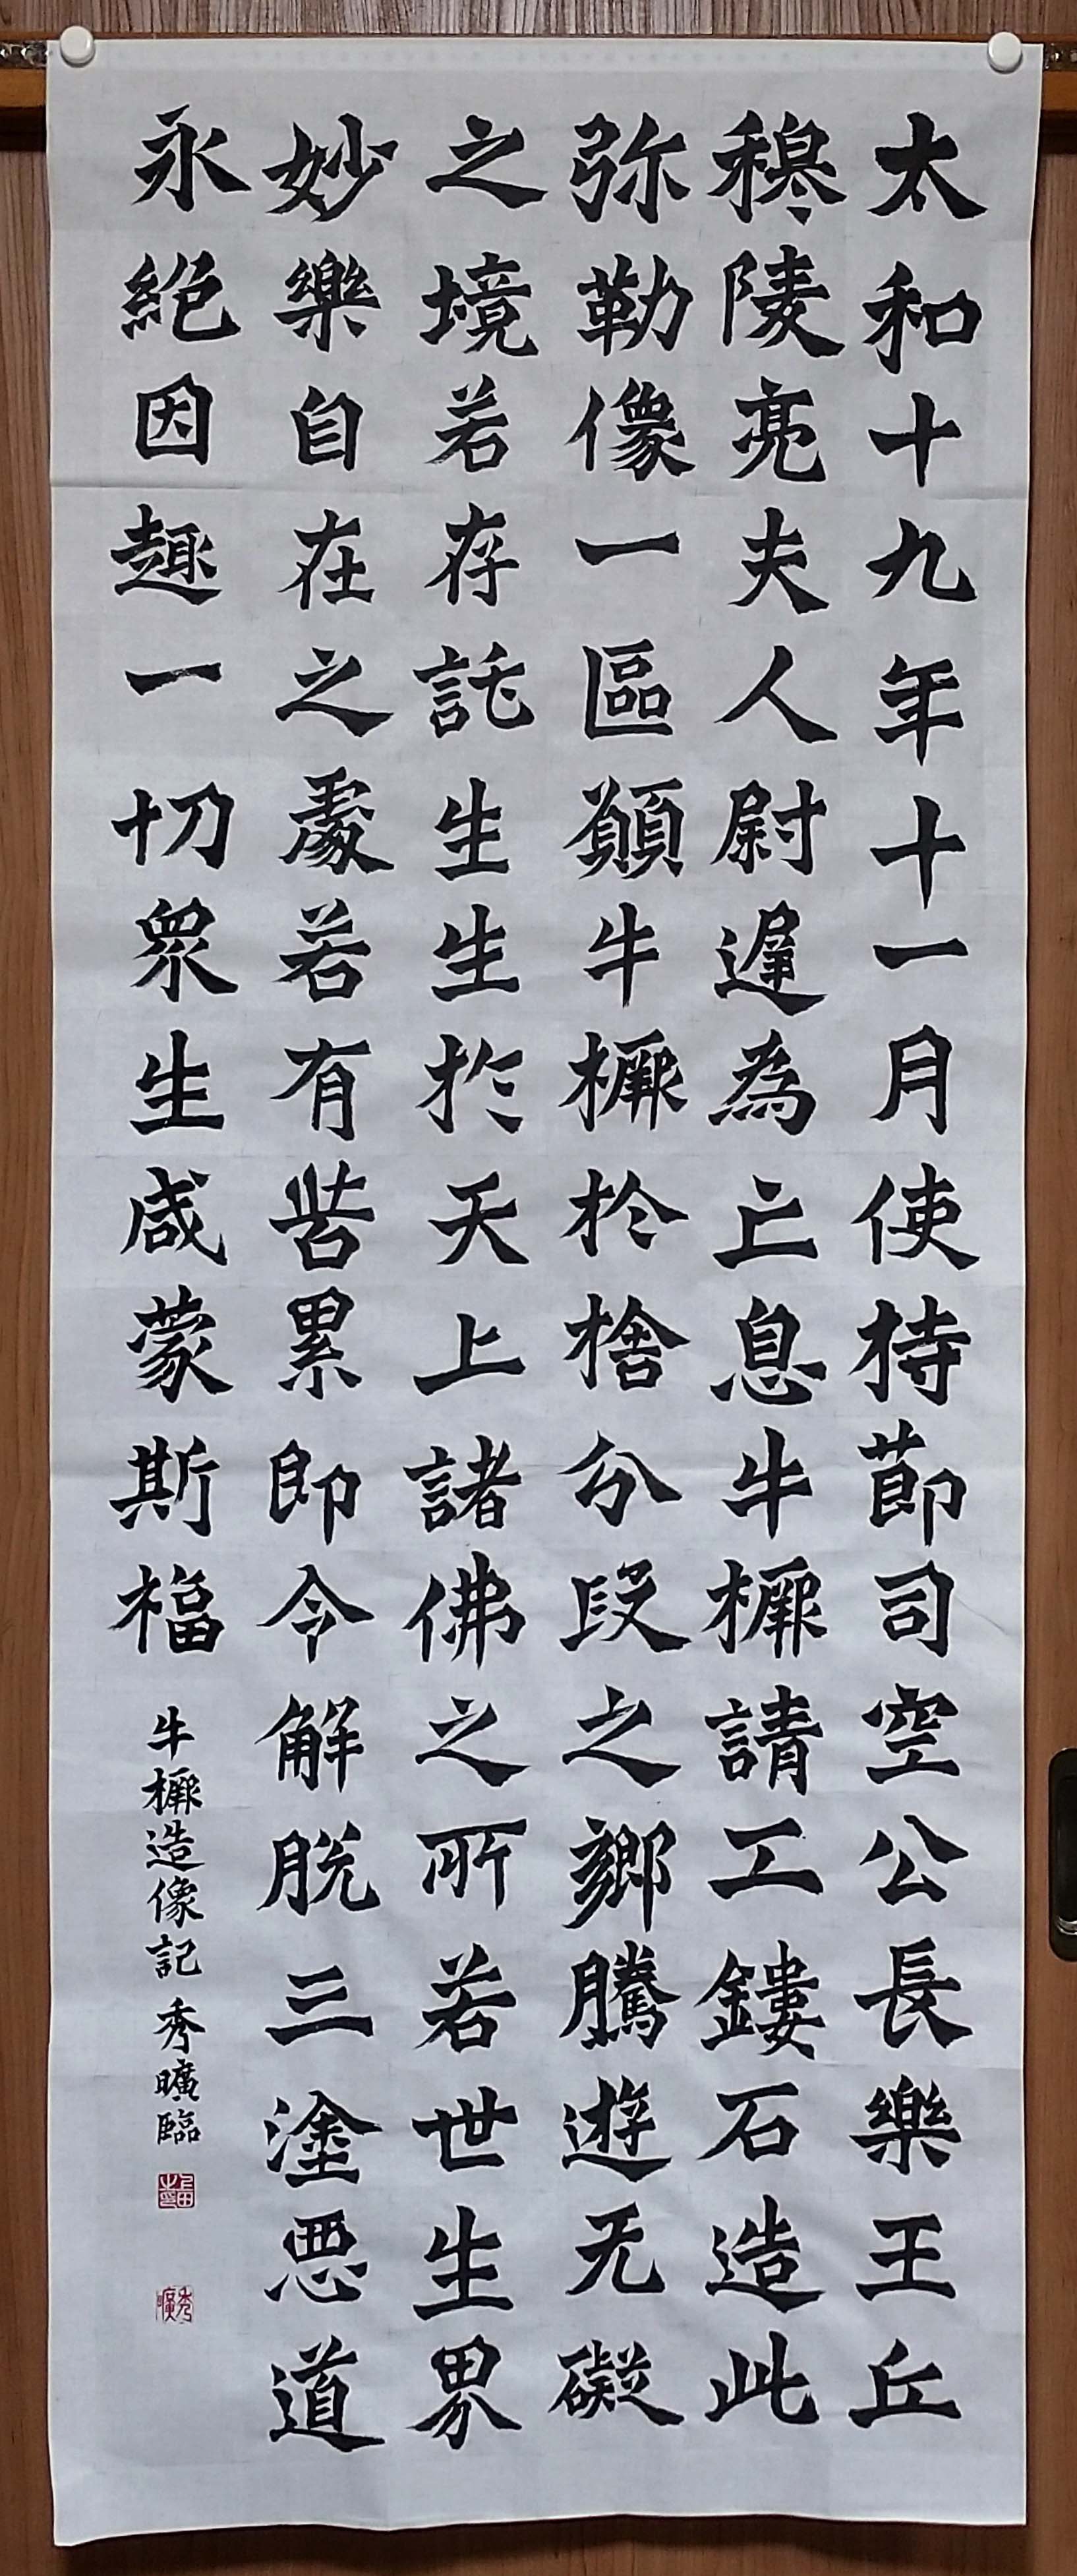 太和十九年十一月使持節司空公長樂王丘
穆陵亮夫人尉遲為亡息牛橛請工鏤石造此
弥勒像一區願牛橛於捨分段之鄉騰遊无礙
之境若存託生生於天上諸佛之所若世生界
妙樂自在之處若有苦累即令解脱三塗惡道
永絶因趣一切衆生咸蒙斯福
牛橛造像記 秀曠臨
秀曠